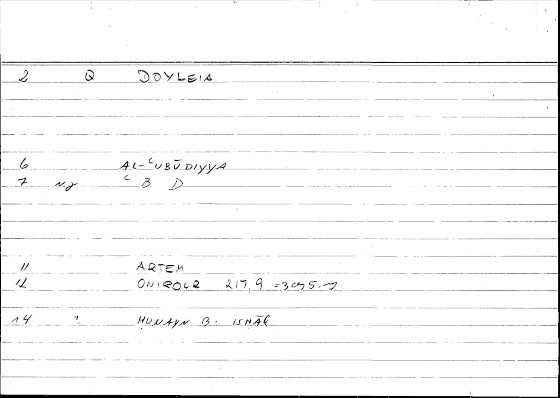 2 Q DOYLEIA
6 AL-ʿUBŪDIYYA
7 ʿ B D
11 ARTEM
12 ONIROCR 217,9
14 ḤUNAYN B. ISḤĀQ